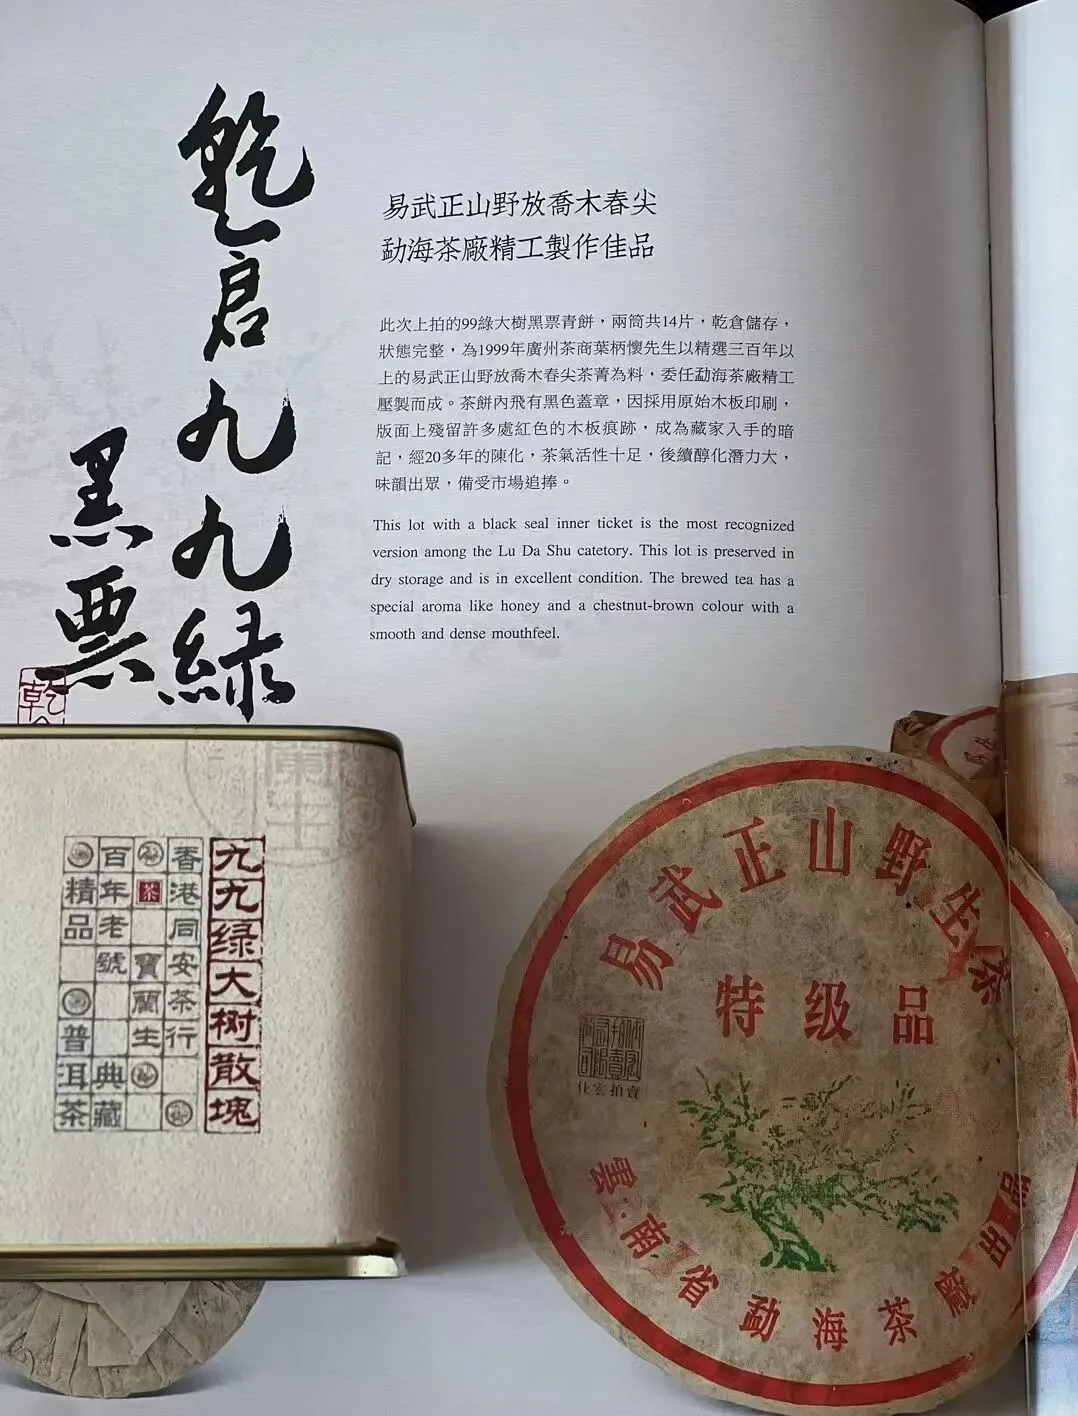 乾倉九九緑
黑票
乾
易武正山野放喬木春尖
勐海茶廠精工製作佳品
此次上拍的99綠大樹黑票青餅，兩筒共14片，乾倉儲存，
狀態完整，為1999年廣州茶商葉柄懷先生以精選三百年以
上的易武正山野放喬木春尖茶菁為料，委任勐海茶廠精工
壓製而成。茶餅內飛有黑色蓋章，因採用原始木板印刷，
版面上殘留許多處紅色的木板痕跡，成為藏家入手的暗
記，經20多年的陳化，茶氣活性十足，後續醇化潛力大，
味韻出眾，備受市場追捧。
This lot with a black seal inner ticket is the most recognized
version among the Lu Da Shu catetory. This lot is preserved in
dry storage and is in excellent condition. The brewed tea has a
special aroma like honey and a chestnut-brown colour with a
smooth and dense mouthfeel.
九九绿大树散塊
香港同安茶行
茶
寶蘭生
百年老號
典藏
精品
普洱茶
易武正山野生茶
特级品
雲南省勐海茶廠出品